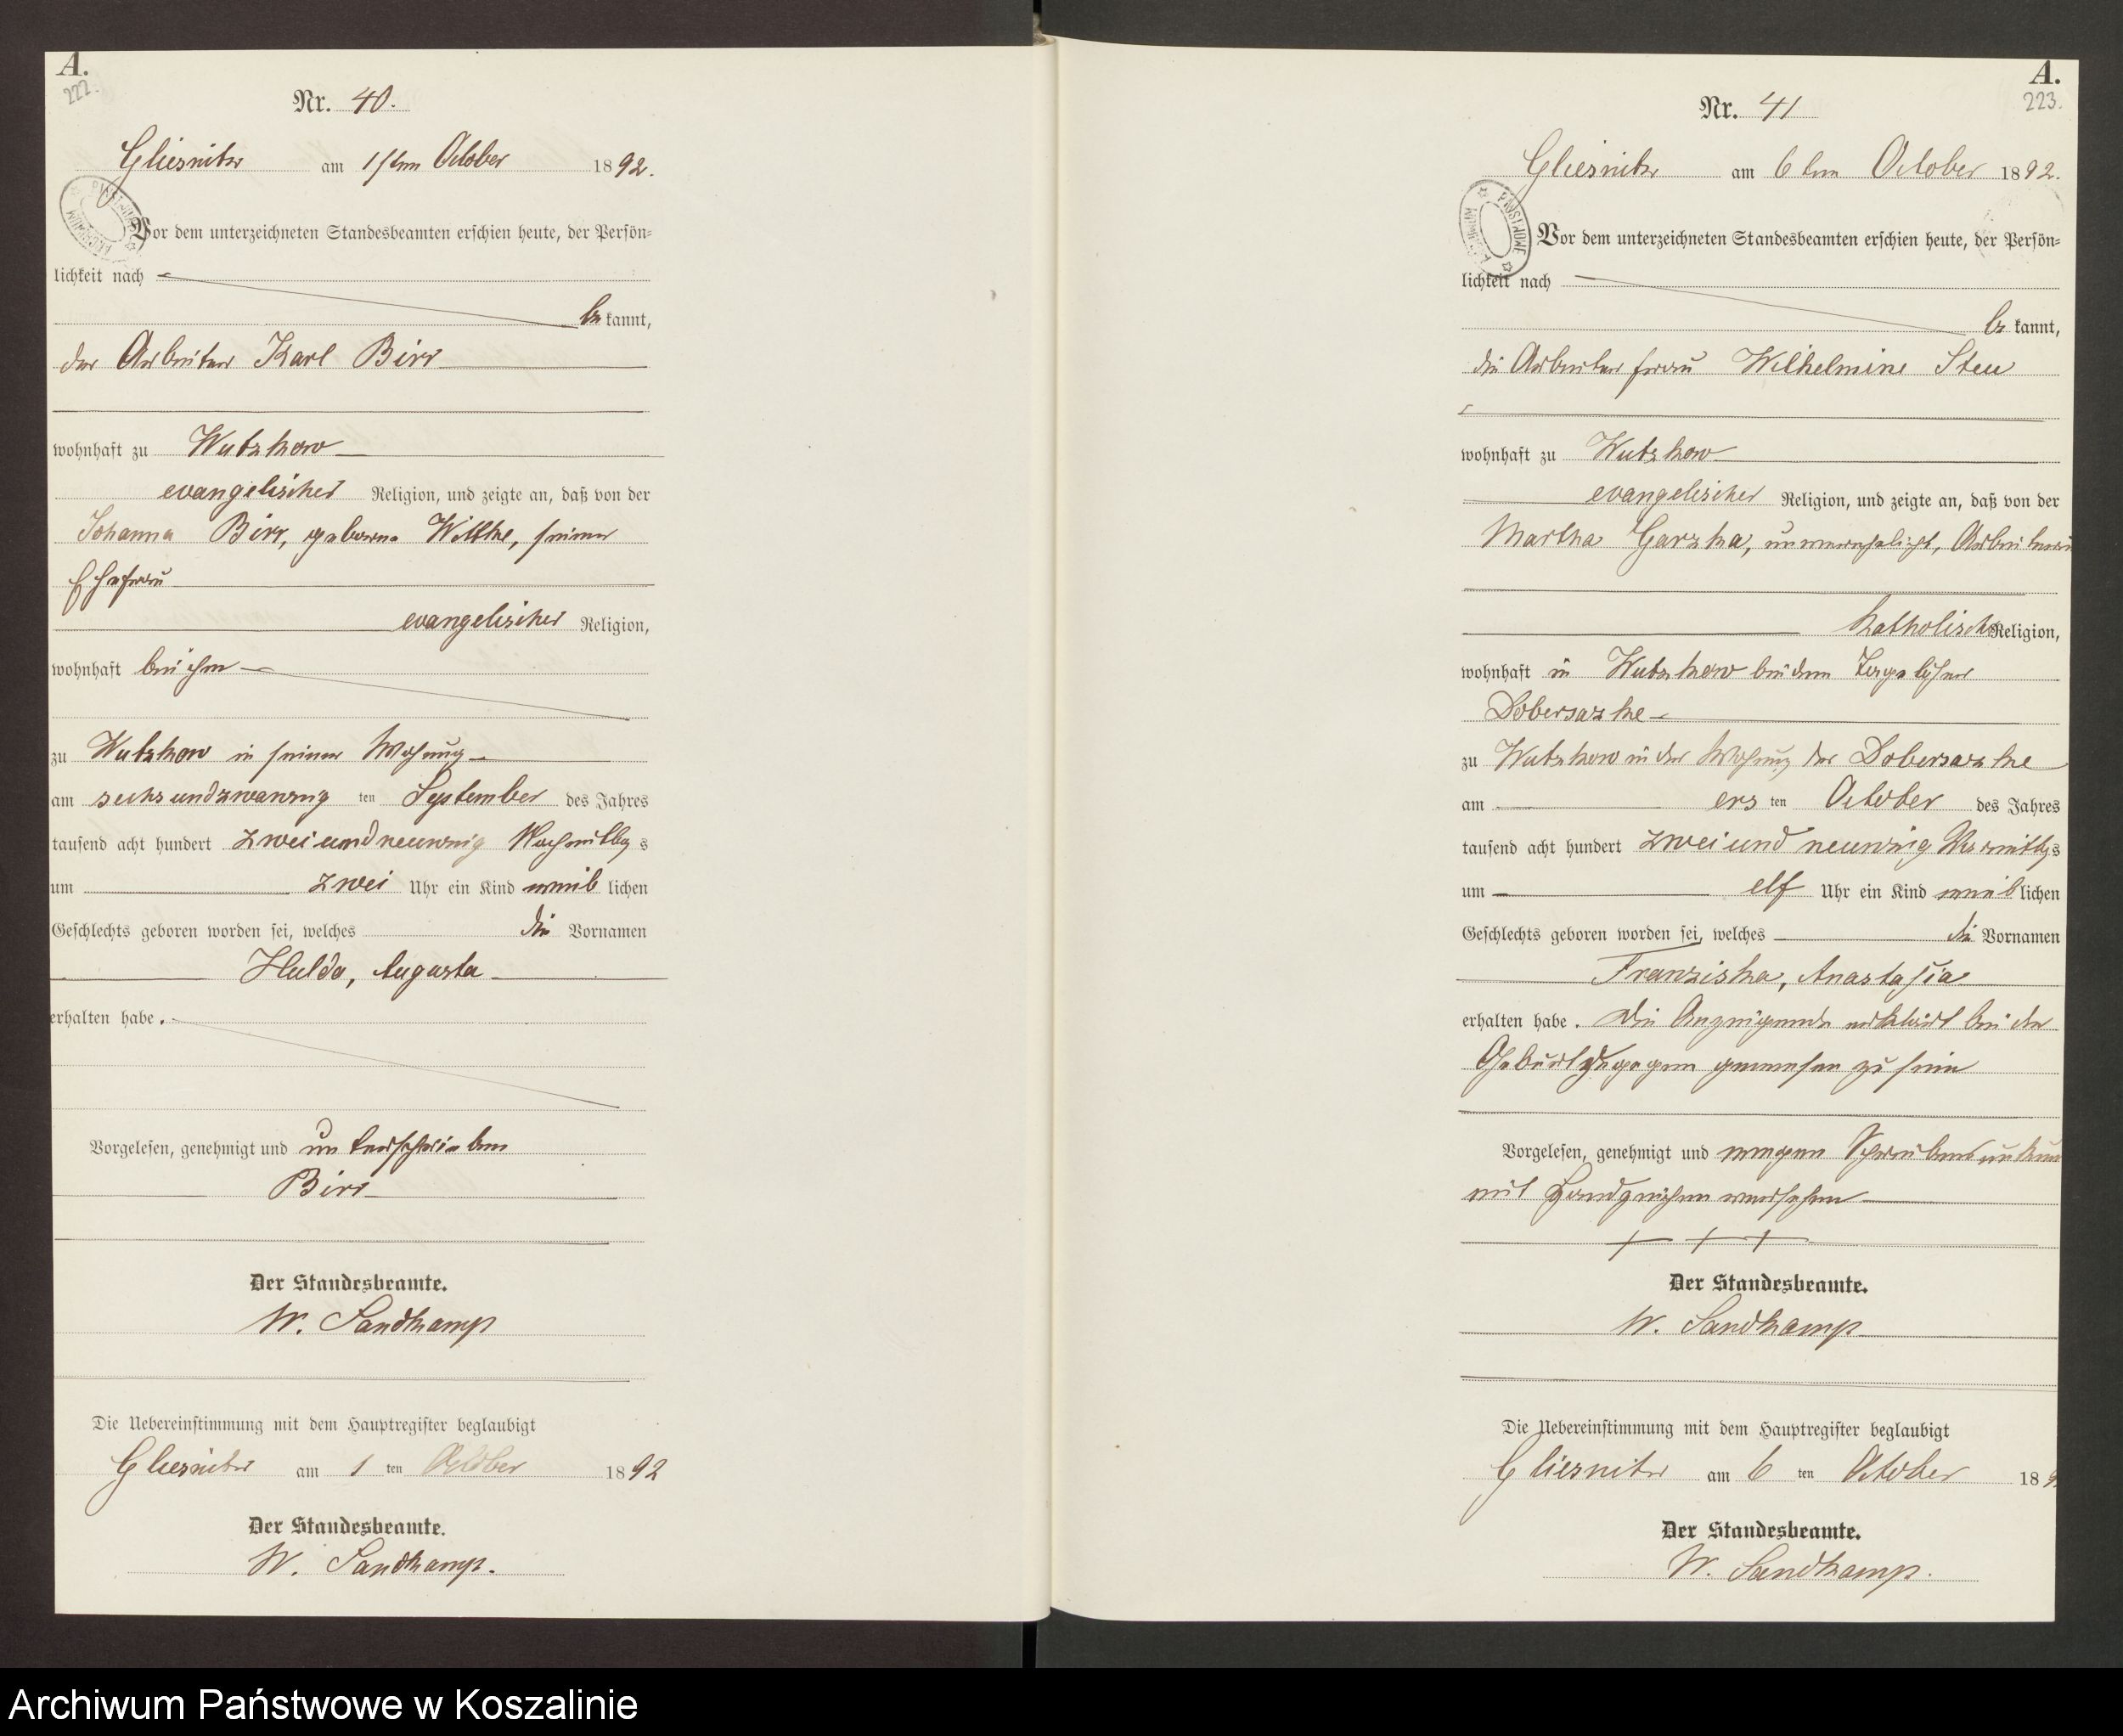 A.
222.
Nr. 40.
Gliesnitz am 1ten October 1892.
Vor dem unterzeichneten Standesbeamten erschien heute, der Persön=
lichkeit nach
be kannt,
der Arbeiter Karl Birr
wohnhaft zu Wutzkow
evangelischer Religion, und zeigte an, daß von der
Johanna Birr, geborene Witthe, seiner
Ehefrau
evangelischer Religion,
wohnhaft bei ihm
zu Wutzkow in seiner Wohnung
am sechsundzwanzig ten September des Jahres
tausend acht hundert zweiundneunzig Nachmittags
um zwei Uhr ein Kind weiblichen
Geschlechts geboren worden sei, welches die Vornamen
Hulda, Augusta
erhalten habe.
Vorgelesen, genehmigt und unterschrieben
Birr
Der Standesbeamte.
W. Sandkamp
Die Uebereinstimmung mit dem Hauptregister beglaubigt
Gliesnitz am 1 ten October 1892
Der Standesbeamte.
W. Sandkamp.
A.
223.
Nr. 41
Gliesnitz am 6ten October 1892.
Vor dem unterzeichneten Standesbeamten erschien heute, der Persön=
lichkeit nach
be kannt,
die Arbeiterfrau Wilhelmine Steu
wohnhaft zu Wutzkow
evangelischer Religion, und zeigte an, daß von der
Martha Garzka, unverehelicht, Arbeiterin
katholischer Religion,
wohnhaft in Wutzkow bei dem Tagelöhner
Dobersazke
zu Wutzkow in der Wohnung des Dobersazke
am ers ten October des Jahres
tausend acht hundert zweiund neunzig Vormittags
um elf Uhr ein Kind weiblichen
Geschlechts geboren worden sei, welches die Vornamen
Franziska, Anastasia
erhalten habe. Die Anzeigende erklärt bei der
Geburt zugegen gewesen zu sein
Vorgelesen, genehmigt und wegen Schreibensunkun
mit Handzeichen versehen
+ + +
Der Standesbeamte.
W. Sandkamp
Die Uebereinstimmung mit dem Hauptregister beglaubigt
Gliesnitz am 6 ten October 189
Der Standesbeamte.
W. Sandkamp.
Archiwum Państwowe w Koszalinie